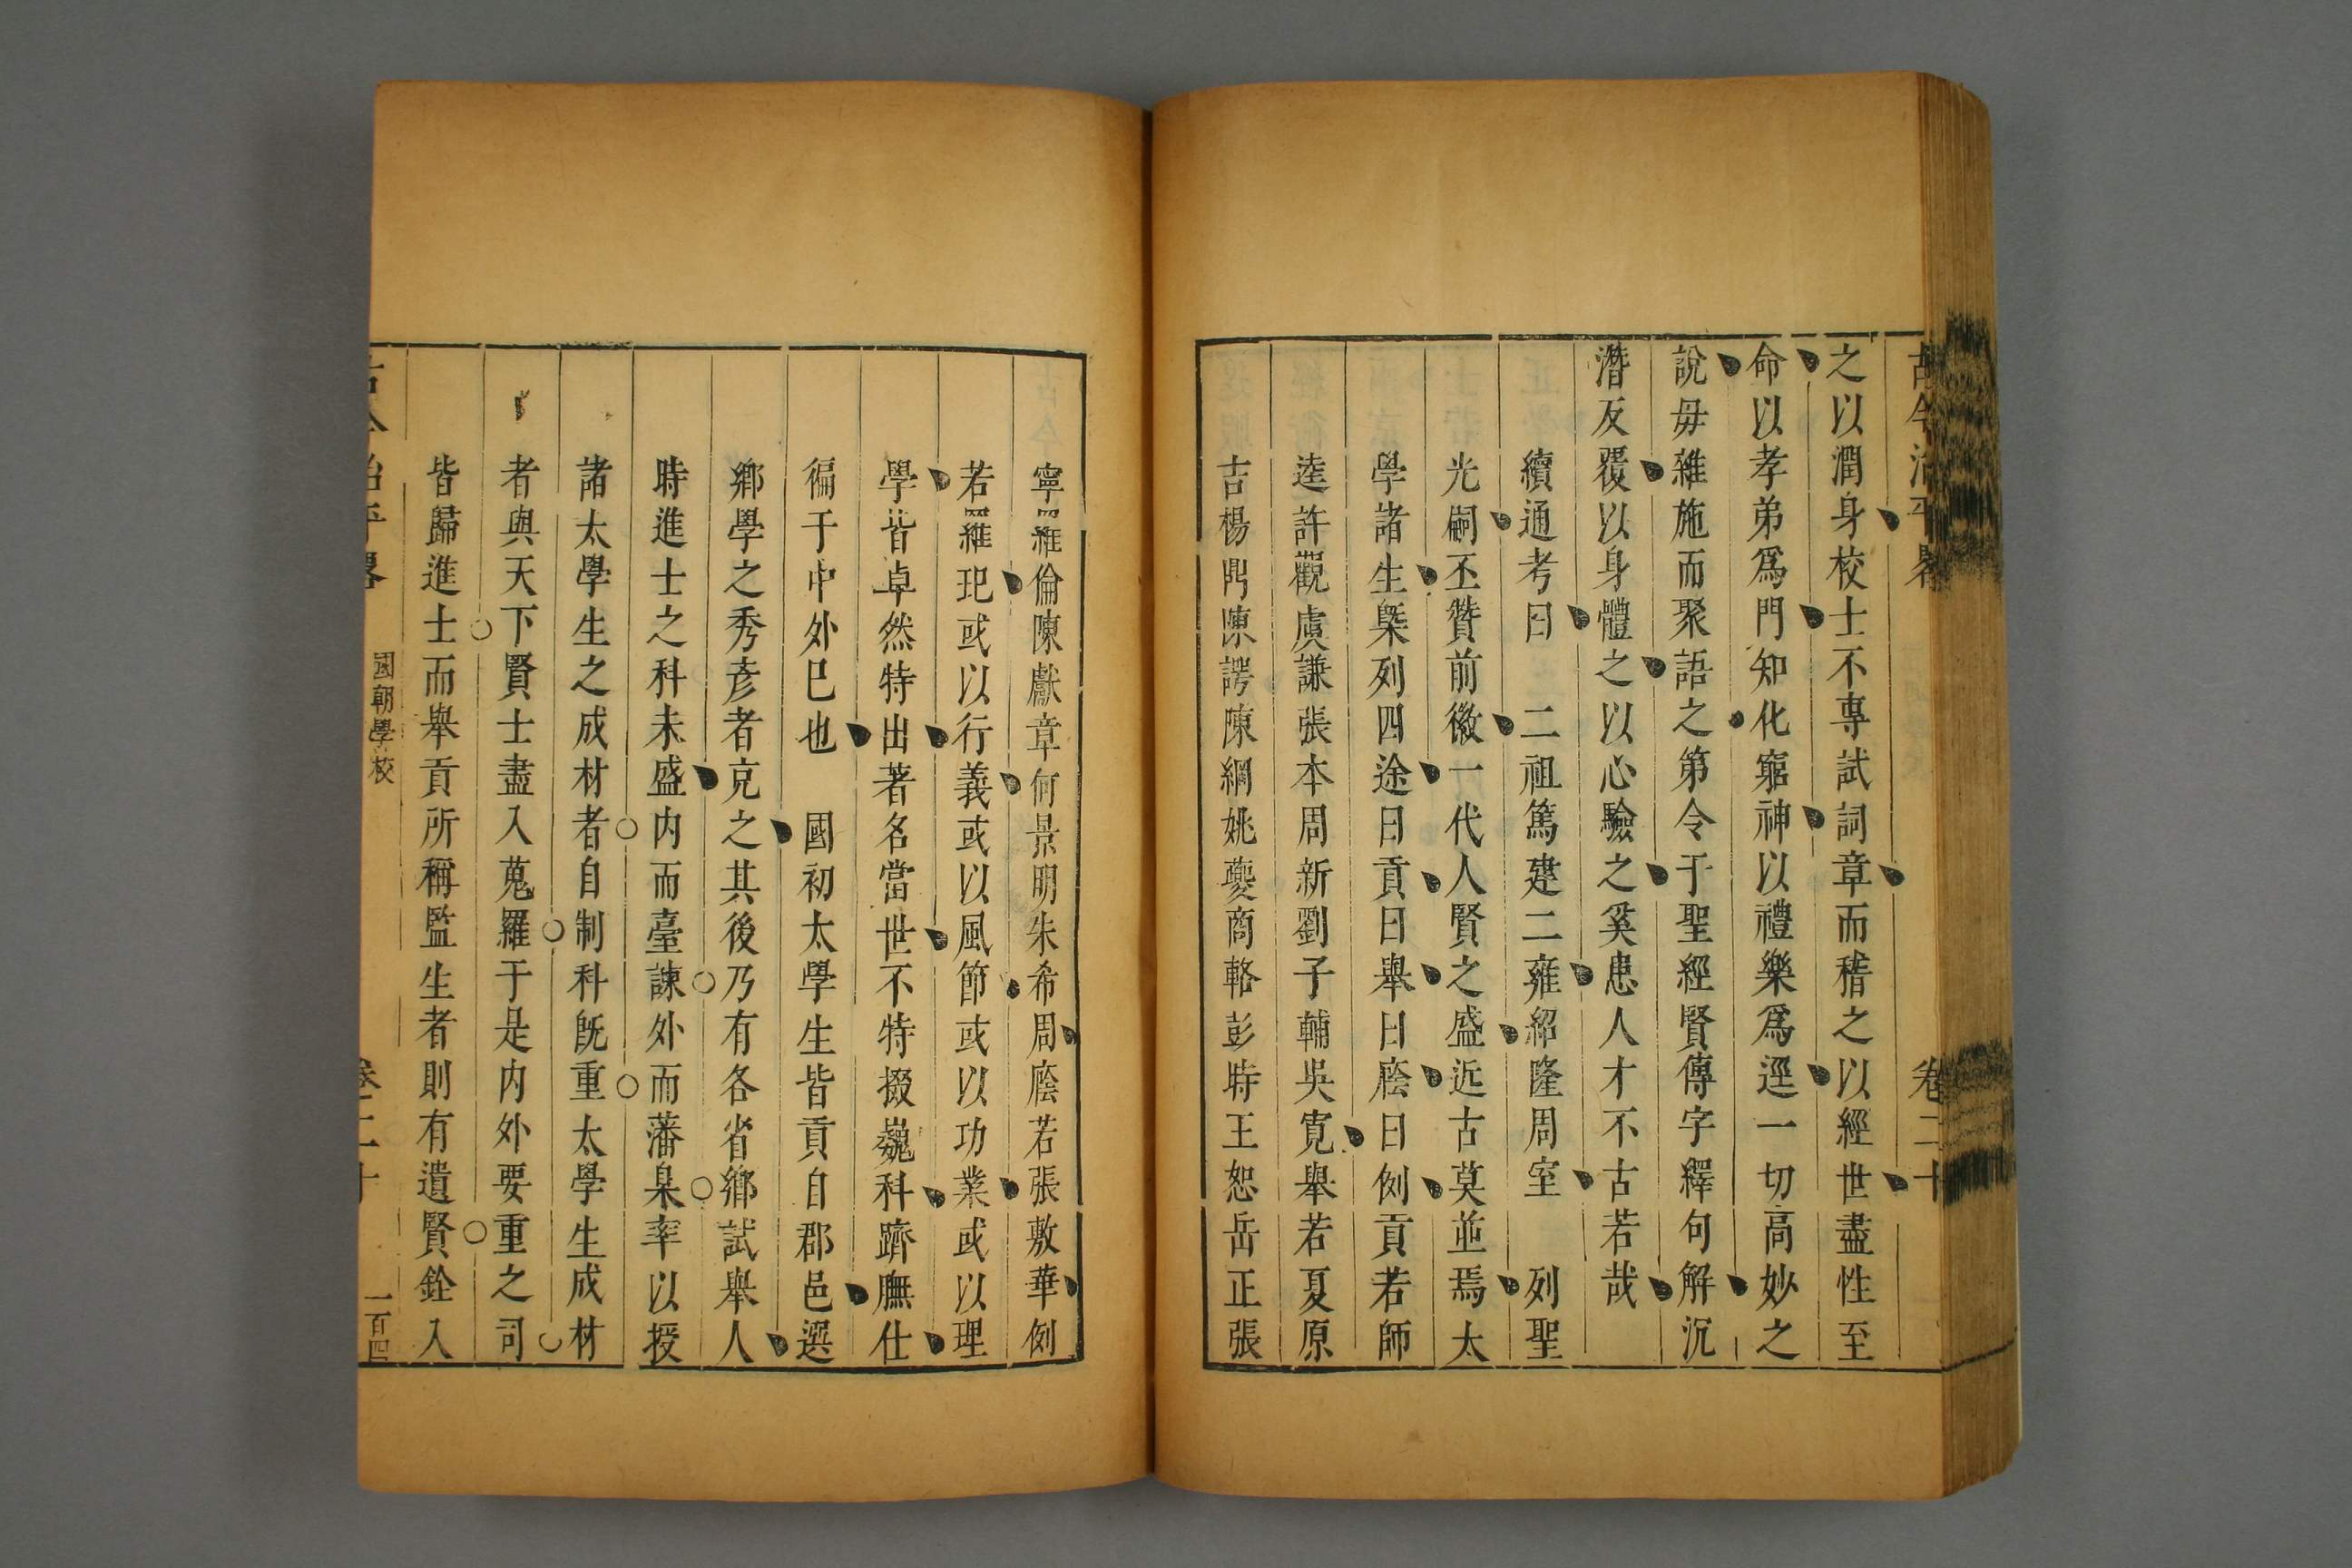 古今治平畧 卷二十
之以潤身校士不專試詞章而稽之以經世盡性至
命以孝弟爲門知化窮神以禮樂爲逕一切高妙之
說毋雜施而聚語之第令于聖經賢傳字繹句解沉
潛反覆以身體之以心驗之奚患人才不古若哉
續通考曰 二祖篤建二雍紹隆周室 列聖
光嗣丕贊前徽一代人賢之盛近古莫並焉太
學諸生槩列四途曰貢曰舉曰廕曰例貢若師
逵許觀虞謙張本周新劉子輔吳寬舉若夏原
吉楊鼎陳諤陳綱姚夔商輅彭時王恕岳正張
寧羅倫陳獻章何景明朱希周廕若張敷華例
若羅玘或以行義或以風節或以功業或以理
學皆卓然特出著名當世不特掇巍科躋膴仕
徧于中外巳也 國初太學生皆貢自郡邑選
鄉學之秀彥者克之其後乃有各省鄉試舉人
時進士之科未盛内而臺諫外而藩臬率以授
諸太學生之成材者自制科旣重太學生成材
者與天下賢士盡入蒐羅于是内外要重之司
皆歸進士而舉貢所稱監生者則有遺賢銓入
古今治平畧 國朝學校 卷二十 一百四